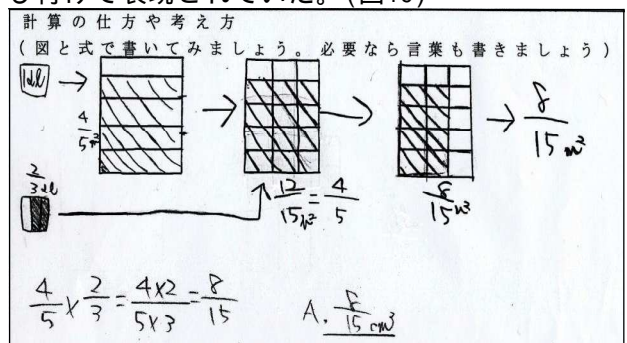 計算の仕方や考え方
(図と式で書いてみましょう。必要なら言葉も書きましょう)
1dl → 4/5 m² → → → 8/15 m²
2/3 dl
12/15 m² = 4/5
8/15 m²
4/5 × 2/3 = 4×2/5×3 = 8/15
A. 8/15 cm³